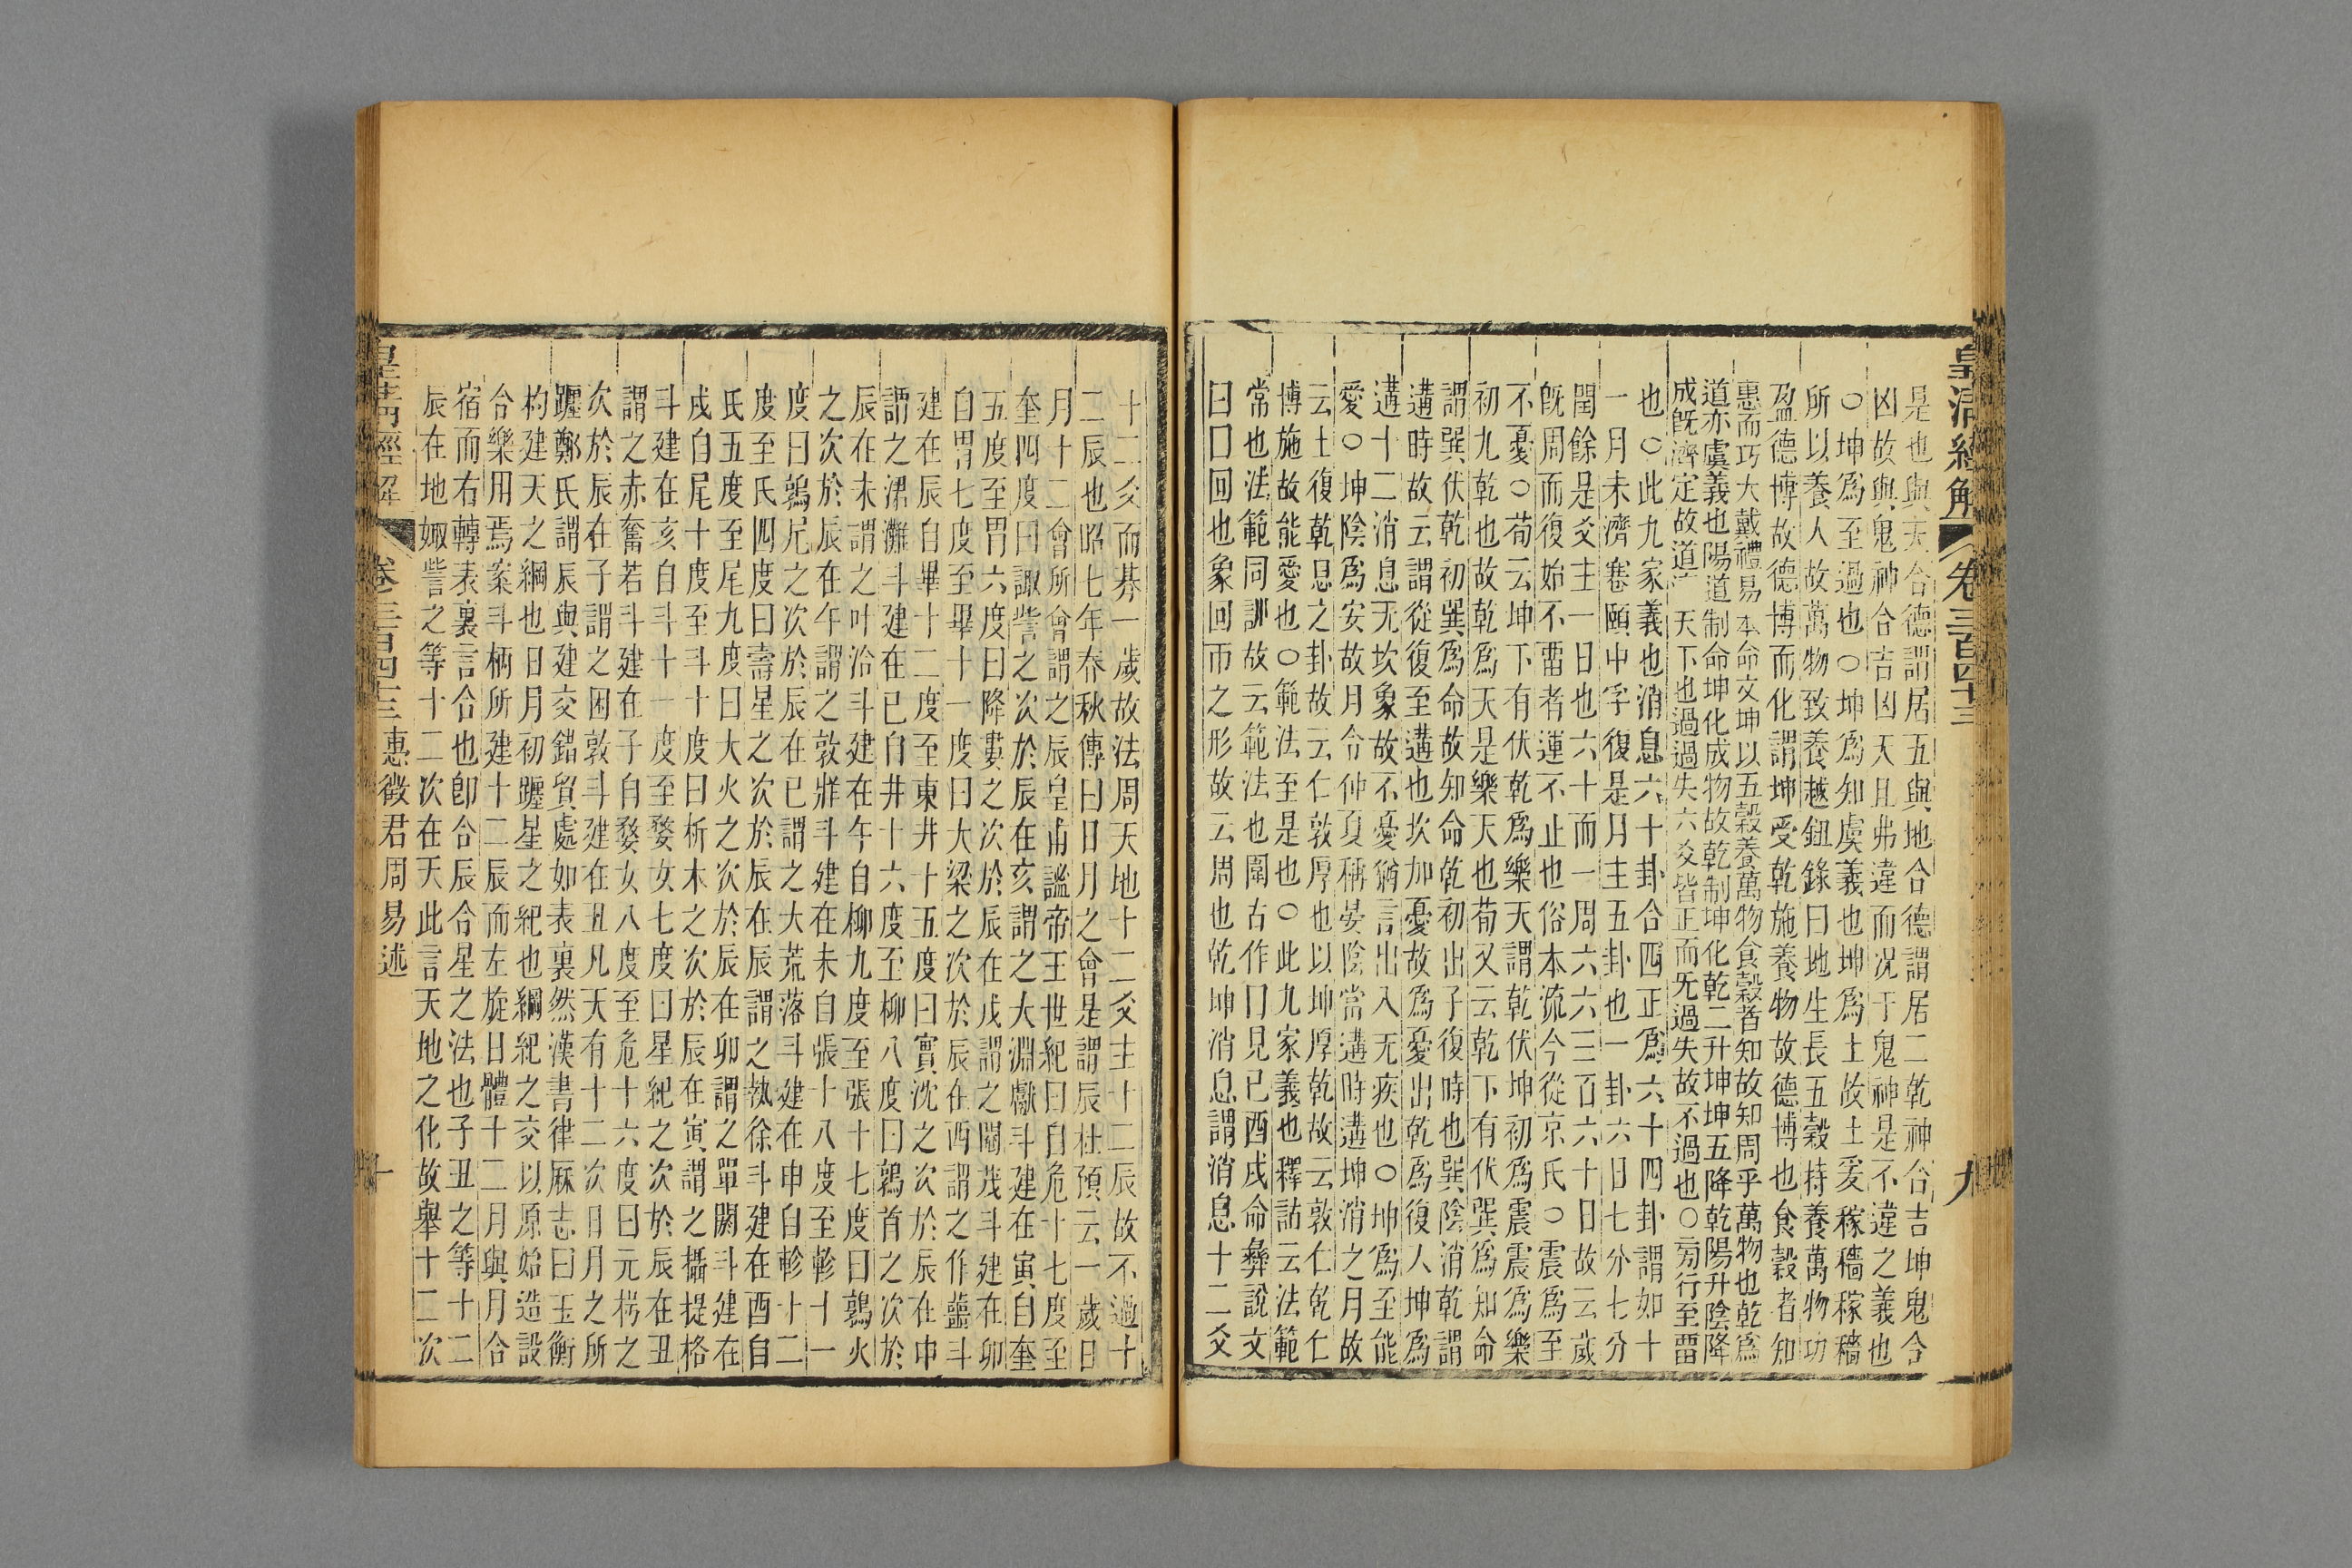 皇清經解
卷三百四十三
九
是也與天合德謂居五與地合德謂居二乾神合吉坤鬼合
凶故與鬼神合吉凶天且弗違而况于鬼神是不違之義也
○坤爲至過也○坤爲知虞義也坤爲土故土爰稼穡稼穡
所以養人故萬物致養越鈕錄曰地生長五穀持養萬物功
盈德博故德博而化謂坤受乾施養物故德博也食穀者知
惠而巧大戴禮易本命文坤以五穀養萬物食穀者知故知周乎萬物也乾爲
道亦虞義也陽道制命坤化成物故乾制坤化乾二升坤坤五降乾陽升陰降
成旣濟定故道濟天下也過過失六爻皆正而旡過失故不過也○㫄行至畱
也○此九家義也消息六十卦合四正爲六十四卦謂如十
一月未濟蹇頤中孚復是月主五卦也一卦六日七分七分
閏餘是爻主一日也六十而一周六六三百六十日故云歲
旣周而復始不畱者運不止也俗本流今從京氏○震爲至
不憂○荀云坤下有伏乾爲樂天謂乾伏坤初爲震震爲樂
初九乾也故乾爲天是樂天也荀又云乾下有伏巽爲知命
謂巽伏乾初巽爲命故知命乾初出子復時也巽陰消乾謂
遘時故云謂從復至遘也坎加憂故爲憂出乾爲復人坤爲
遘十二消息无坎象故不憂猶言出入无疾也○坤爲至能
愛○坤陰爲安故月令仲夏稱晏陰當遘時遘坤消之月故
云土復乾息之卦故云仁敦厚也以坤厚乾故云敦仁乾仁
博施故能愛也○範法至是也○此九家義也釋詁云法範
常也法範同訓故云範法也圍古作囗見已酉戌命彝說文
曰囗回也象回帀之形故云周也乾坤消息謂消息十二爻
十二爻而朞一歲故法周天地十二爻主十二辰故不過十
二辰也昭七年春秋傳曰日月之會是謂辰杜預云一歲日
月十二會所會謂之辰皇甫謐帝王世紀曰自危十七度至
奎四度曰諏訾之次於辰在亥謂之大淵獻斗建在寅自奎
五度至胃六度曰降婁之次於辰在戌謂之閹茂斗建在卯
自胃七度至畢十一度曰大梁之次於辰在酉謂之作蘁斗
建在辰自畢十二度至東井十五度曰實沈之次於辰在申
謂之涒灘斗建在巳自井十六度至柳八度曰鶉首之次於
辰在未謂之叶洽斗建在午自柳九度至張十七度曰鶉火
之次於辰在午謂之敦牂斗建在未自張十八度至軫十一
度曰鶉尾之次於辰在巳謂之大荒落斗建在申自軫十二
度至氐四度曰壽星之次於辰在辰謂之執徐斗建在酉自
氐五度至尾九度曰大火之次於辰在卯謂之單閼斗建在
戌自尾十度至斗十度曰析木之次於辰在寅謂之攝提格
斗建在亥自斗十一度至婺女七度曰星紀之次於辰在丑
謂之赤奮若斗建在子自婺女八度至危十六度曰元枵之
次於辰在子謂之困敦斗建在丑凡天有十二次日月之所
躔鄭氏謂辰與建交錯貿處如表裏然漢書律厤志曰玉衡
杓建天之綱也日月初躔星之紀也綱紀之交以原始造設
合樂用焉案斗柄所建十二辰而左旋日體十二月與月合
宿而右轉表裏言合也卽合辰合星之法也子丑之等十二
辰在地娵訾之等十二次在天此言天地之化故舉十二次
皇清經解
卷三百四十三
惠徵君周易述
十